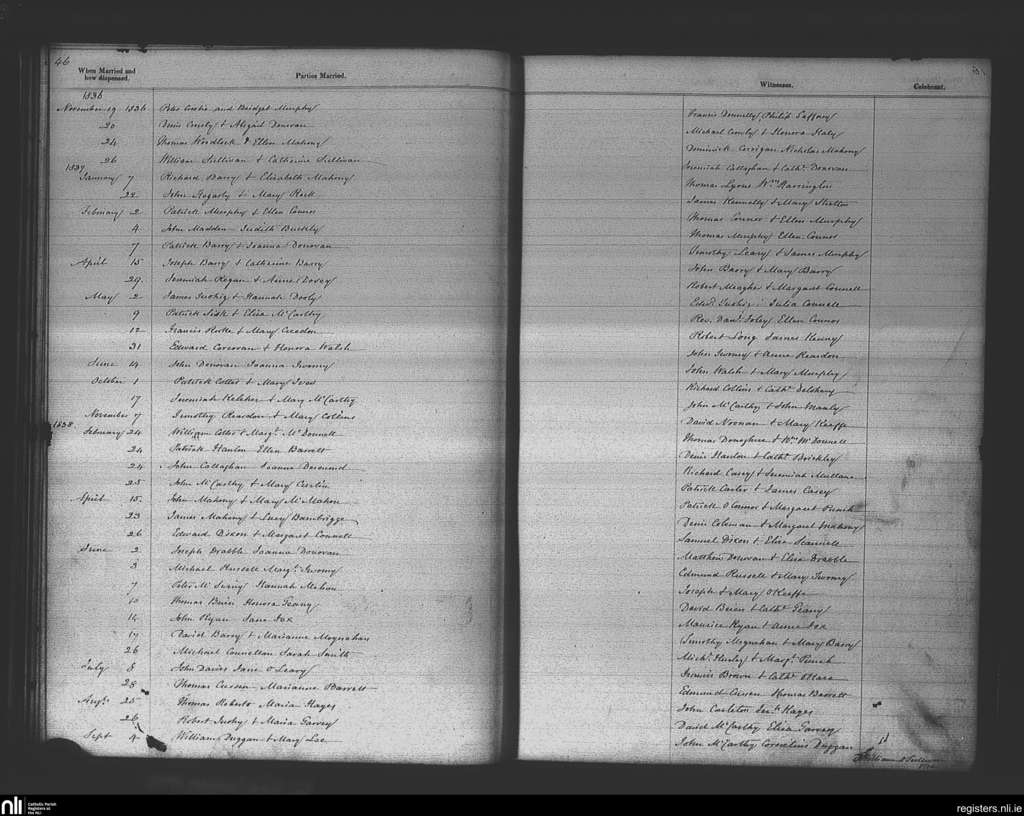 46
When Married and how dispensed.
Parties Married.
Witnesses.
Celebrant.
1836
November 19 1836 Peter and Bridget Murphy Francis Donnelly Philip
20 Denis Comly & Abigail Donovan Michael Comly & Honora Haly
24 Thomas Woodlock & Ellen Mahony Dominick Corrigan Nicholas Mahony
26 William Sullivan & Catherine Sullivan Jeremiah Callaghan & Cathe. Donovan
1837
January 7 Richard Barry & Elizabeth Mahony Thomas Lyons Wm. Harrington
22 John Hogarty & Mary Rock James Kennelly & Mary
February 2 Patrick Murphy & Ellen Connor Thomas Connor & Ellen Murphy
4 John Madden Judith Buckley Thomas Murphy Ellen Connor
7 Patrick Barry & Joanna Donovan Timothy Leary & James Murphy
April 15 Joseph Barry & Catherine Barry John Barry & Mary Barry
29 Jeremiah Regan & Anne Robert Meagher & Margaret Connell
May 2 James & Hannah Dooly Edwd. Julia Connell
9 Patrick Sisk & Eliza McCarthy Rev. Danl. Foley Ellen Connor
12 Francis Rorke & Mary Creedon Robert Long James Kenny
31 Edward Corcoran & Honora Walsh John Twomy & Anne Reardon
June 14 John Donovan Joanna Twomy John Walsh & Mary Murphy
October 1 Patrick Cotter & Mary Richard Collins & Cathe. Delahany
17 Jeremiah Keleher & Mary McCarthy John McCarthy & John Manly
November 7 Timothy Reardon & Mary Collins David Noonan & Mary Keeffe
1838
February 24 William Cotter & Margt. McDonnell Thomas Donoghue & Wm. McDonnell
24 Patrick Hanlon Ellen Barrett Denis Hanlon & Cathe. Brickley
24 John Callaghan Joanna Desmond Richard Casey & Jeremiah Mullane
25 John McCarthy & Mary Patrick Carter & James Casey
April 15 John Mahony & Mary McMahon Patrick O'Connor & Margaret
23 James Mahony & Lucy Bambrigge Denis Coleman & Margaret Mahony
26 Edward Dixon & Margaret Connell Samuel Dixon & Eliza Scannell
June 2 Joseph Drabble Joanna Donovan Matthew Donovan & Eliza Drabble
3 Michael Russell Margt. Twomy Edmund Russell & Mary Twomy
7 Peter McSwiny Hannah Joseph & Mary O'Keeffe
10 Thomas Brien Honora Geany David Brien & Cathe. Geany
14 John Ryan Jane Fox Maurice Ryan & Anne Fox
17 David Barry & Marianne Moynahan Timothy Moynahan & Mary Barry
26 Michael Connellan Sarah Smith Michl. Hurley & Margt. Punch
July 8 John Davies Jane O'Leary Francis Brown & Cathe. O'Hara
28 Thomas Cussen Marianne Barrett Edmund Cussen Thomas Barrett
Augt. 25 Thomas Roberts Maria Hayes John Carleton Hayes
26 Robert & Maria Garvey David McCarthy Eliza Garvey
Sept 4 William Duggan & Mary Lee John McCarthy Cornelius Duggan
William O'Sullivan
nli
Catholic Parish Registers at the NLI
registers.nli.ie